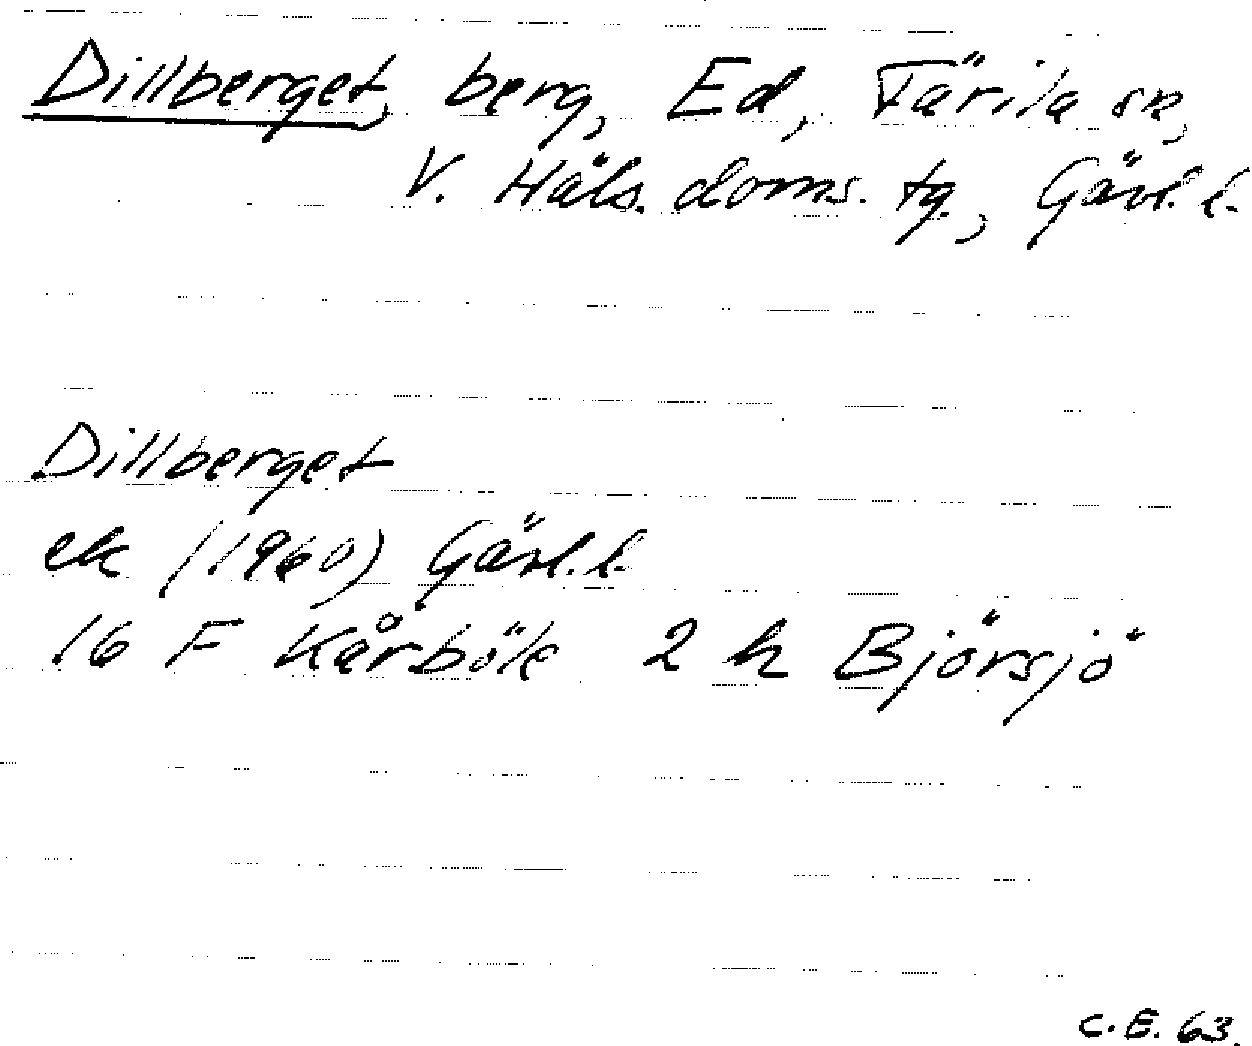 Dillberget, berg, Ed, Färila sn,
V. Häls. doms. tg., Gävl. l.
Dillberget
ek (1960) Gävl. l.
16 F Kårböle 2 h Björsjö
C.E. 63.